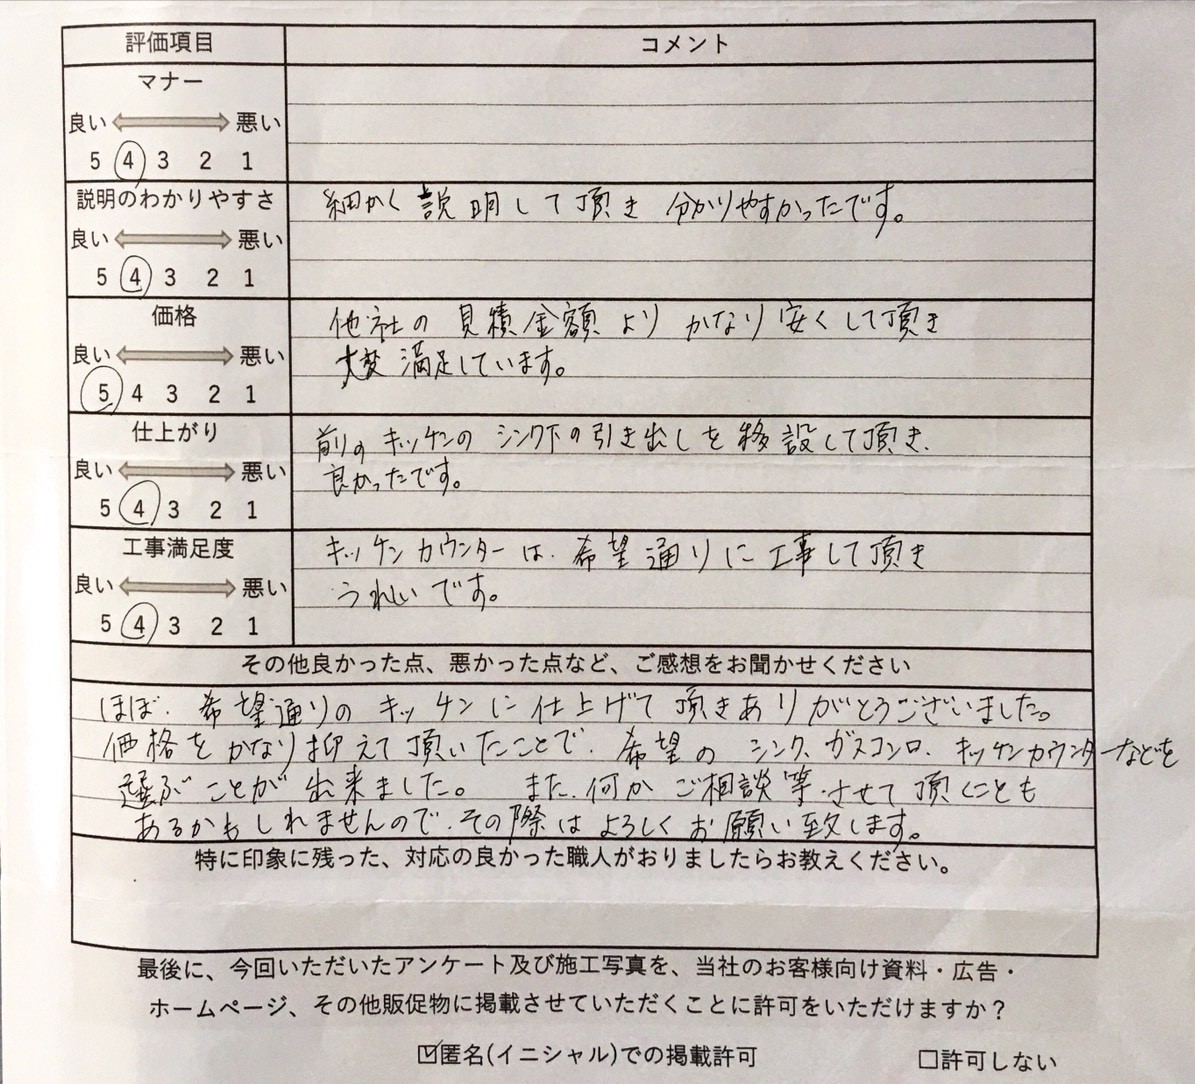 評価項目 コメント
マナー
良い 悪い
5 4 3 2 1
説明のわかりやすさ
良い 悪い
5 4 3 2 1
細かく説明して頂き 分かりやすかったです。
価格
良い 悪い
5 4 3 2 1
他社の見積金額よりかなり安くして頂き
大変満足しています。
仕上がり
良い 悪い
5 4 3 2 1
前のキッチンのシンク下の引き出しを移設して頂き、
良かったです。
工事満足度
良い 悪い
5 4 3 2 1
キッチンカウンターは、希望通りに工事して頂き
うれしいです。
その他良かった点、悪かった点など、ご感想をお聞かせください
ほぼ、希望通りのキッチンに仕上げて頂きありがとうございました。
価格をかなり抑えて頂いたことで、希望のシンク、ガスコンロ、キッチンカウンターなどを
選ぶことが出来ました。 また、何かご相談等、させて頂くことも
あるかもしれませんので、その際はよろしくお願い致します。
特に印象に残った、対応の良かった職人がおりましたらお教えください。
最後に、今回いただいたアンケート及び施工写真を、当社のお客様向け資料・広告・
ホームページ、その他販促物に掲載させていただくことに許可をいただけますか？
☑匿名(イニシャル)での掲載許可 □許可しない